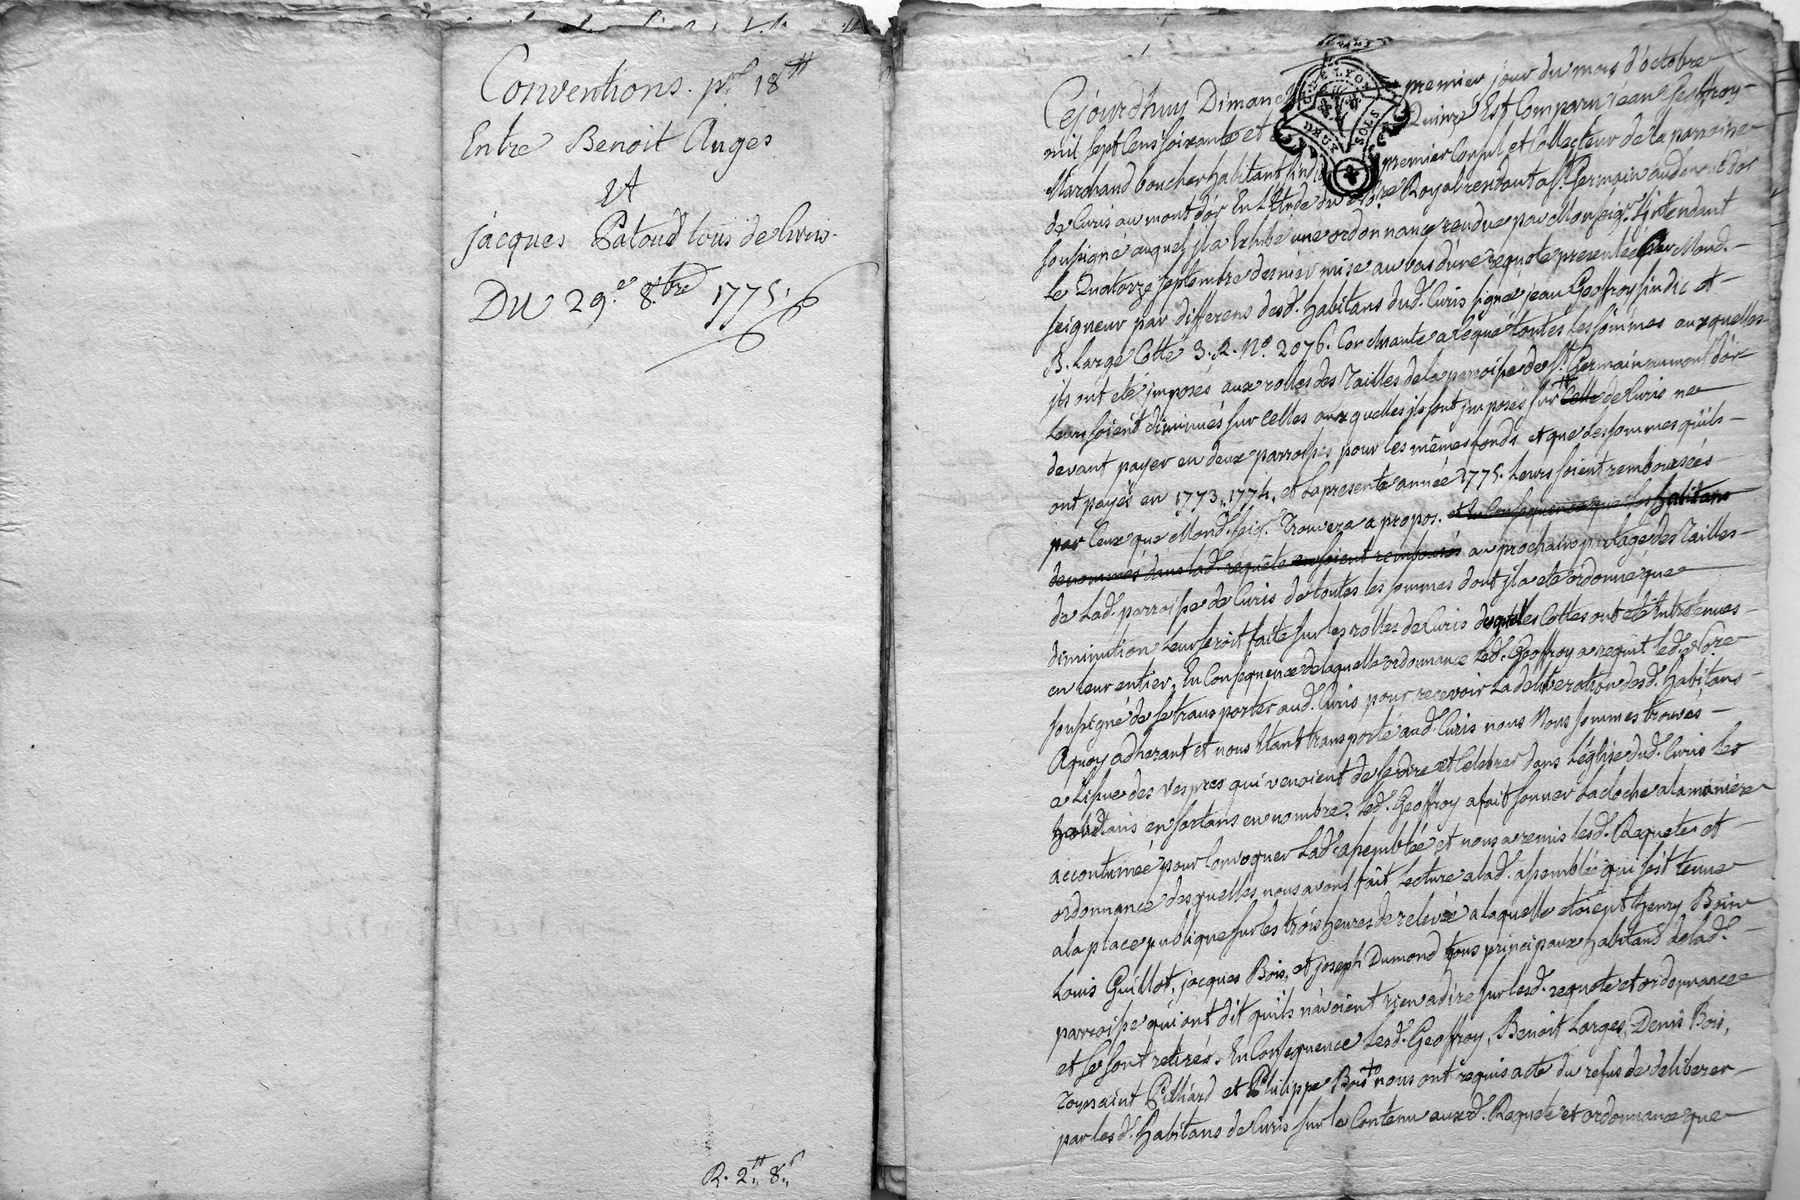 Conventions. pr. 18 ⁂
Entre Benoit Auges
Et
jacques Patoud tous de Curis.
DU 29.e 8.bre 1775.
R. 2 ⁂ 8 s
GEN. DE LYON
DEUX SOLS
Cejourdhuy Dimanche premier jour du mois d'octobre
mil sept Cens soixante et quinze Est Comparu jean Geoffroy
Marchand boucher habitant sindic premier Consul et Collecteur de la parroisse
de Curis au mont d'or En L'Etude du No.re Royal rendant a St. Germain au mont d'or
soussigné auquel jl a Exhibé une ordonnance rendue par Monseigr. L'jntendant
le Quatorze septembre dernier mise au bas d'une requete presentée a Mond.
seigneur par differens desd. habitans dud. Curis signée jean Geoffroy sindic et
B. Large Cotte 3. R. No. 2076. Concluante a ce que toutes les sommes auxquelles
ils ont eté jmposés aux rolles des Tailles de la parroisse de St. Germain au mont d'or
leurs soient diminués sur celles auxquelles jls sont jmposés sur celle de Curis ne
devant payer en deux parroisses pour les mêmes fonds et que les sommes qu'ils
ont payés en 1773, 1774, et la presente année 1775. leurs soient remboursées
par Ceux que Mond. seigr. Trouvera a propos. et en Consequence que les habitans
denommés dans lad. requête en soient remboursés au prochain partage des Tailles
de Lad. parroisse de Curis de toutes les sommes dont jl a eté ordonné que
diminution leur seroit faite sur les rolles de Curis desquelles Cottes ont eté Entretenues
en leur entier. En Consequence de laquelle ordonnance led. Geoffroy a requit led. No.re
soussigné de se transporter aud. Curis pour recevoir La deliberation desd. habitans
Aquoy adherant et nous Etant transporté aud. Curis nous Nous sommes trouvés
a L'issue des Vespres qui venoient de se dire et Celebrer dans L'église dud. Curis les
habitans en sortans en nombre. led. Geoffroy a fait sonner La cloche a la manière
accoutumée pour Convoquer Lad. assemblée et nous a remis lesd. Requetes et
ordonnance desquelles nous avons fait lecture a lad. assemblée qui s'est tenue
a la place publique sur les trois heures de relevée a laquelle etoient henry Boin
Louis Guillot, jacques Bois, et joseph Dumond tous principaux habitans de lad.
parroisse qui ont dit qu'ils n'avoient rien a dire sur lesd. requete et ordonnance
et se sont retirés. En Consequence Lesd. Geoffroy, Benoit Larges, Denis Bois,
Toussaint Pilliard et Philippe Bois nous ont requis acte du refus de deliberer
par lesd. habitans de Curis sur le Contenu auxd. Requete et ordonnance que